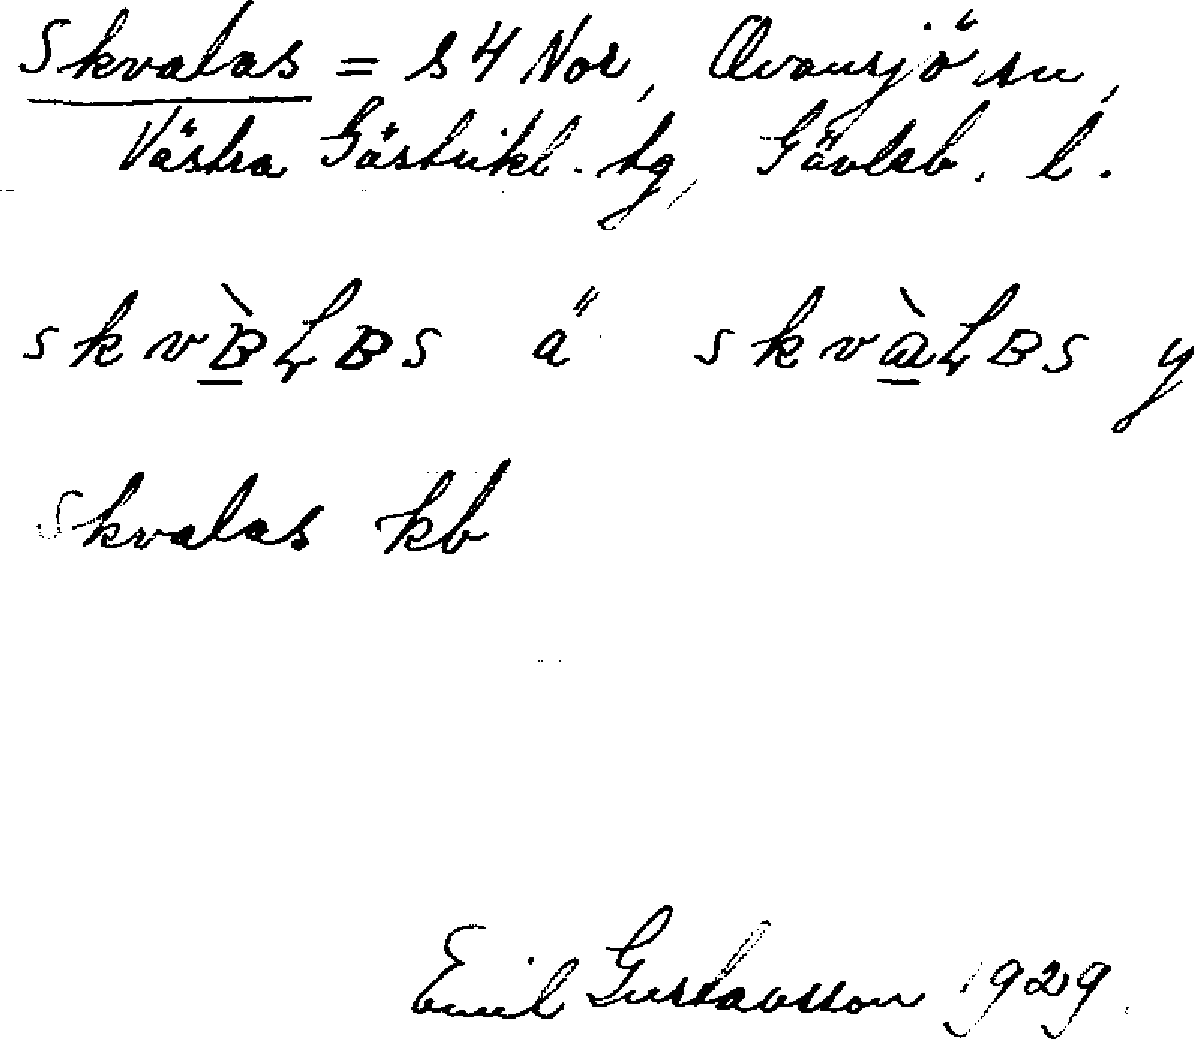 Skvalas = s 4 Nor, Ovansjö sn,
Västra Gästrikl. tg, Gävleb. l.
skvB̀LBS ä skvàLBS y
Skvalas kb
Emil Gustavsson 1929.